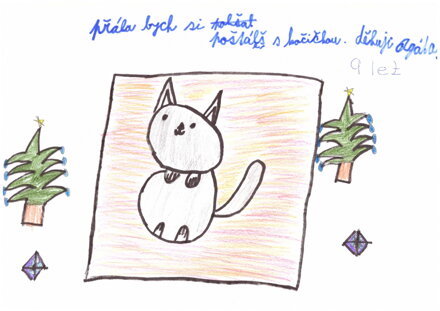 přála bych si polšat
poštářš s kočičkou. děkuji Agáta.
9 let